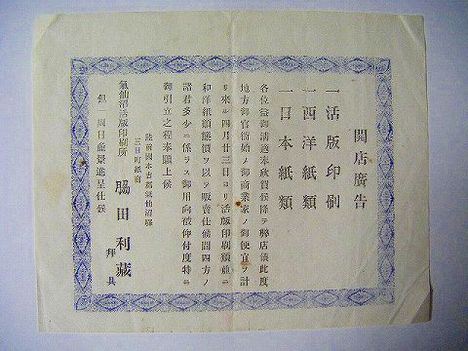 開店廣告
一活版印刷
一西洋紙類
一日本紙類
各位益御淸適奉欣賀候陳ラ弊店儀此度
地方御官衙始メ御商業家ノ御便宜ヲ計
リ來ル四月廿三日ヨリ活版印刷類並ニ
和洋紙類廉價ヲ以ラ販賣仕候間四方ノ
諸君多少ニ係ラス御用向被仰付度特ニ
御引立之程奉願上候
陸前國本吉郡氣仙沼町
三日町
氣仙沼活版印刷所
脇田利藏
拜具
但 同日景進呈仕候